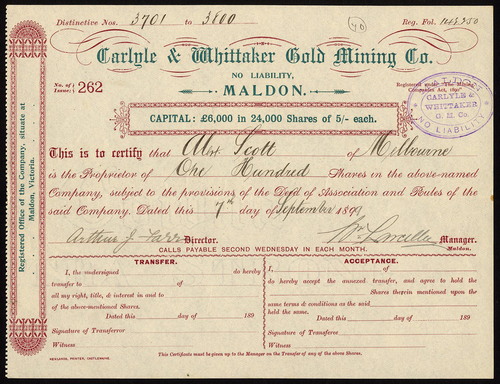 Distinctive Nos. 3701 to 3800
(40)
Reg. Fol.
Carlyle & Whittaker Gold Mining Co.
NO LIABILITY,
MALDON.
No. of Issue: 262
Registered under the Mining Companies Act, 1890
MALDON
CARLYLE & WHITTAKER G. M. Co.
NO LIABILITY
CAPITAL: £6,000 in 24,000 Shares of 5/- each.
Registered Office of the Company, situate at Maldon, Victoria.
This is to certify that Albt Scott of Melbourne
is the Proprietor of One Hundred Shares in the above-named
Company, subject to the provisions of the Deed of Association and Rules of the
said Company. Dated this 7th day of September 1897
Arthur J. Director. Manager.
Maldon.
CALLS PAYABLE SECOND WEDNESDAY IN EACH MONTH.
TRANSFER.
I, the undersigned do hereby
transfer to of
all my right, title, & interest in and to
of the above-mentioned Shares.
Dated this day of 189
Signature of Transferror
Witness
ACCEPTANCE.
I, of
do hereby accept the annexed transfer, and agree to hold the
Shares therein mentioned upon the
same terms & conditions as the said
held the same.
Dated this day of 189
Signature of Transferree
Witness
This Certificate must be given up to the Manager on the Transfer of any of the above Shares.
NEWLANDS, PRINTER, CASTLEMAINE.